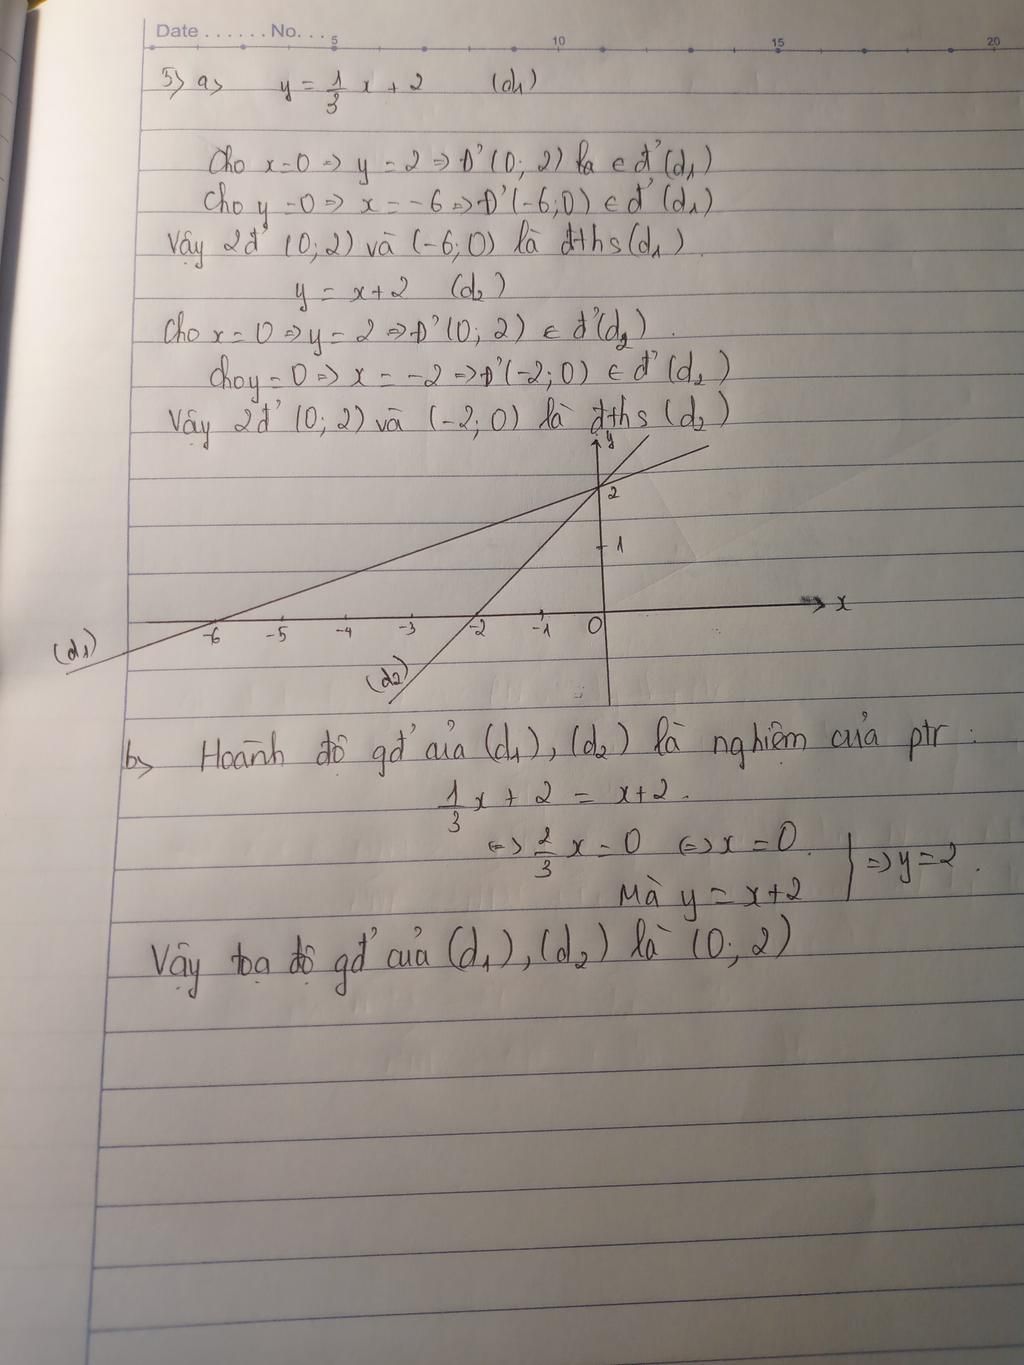 Date ...... No. ... 5 10 15 20
5> a> y = 1/3 x + 2 (d1)
Cho x=0 => y = 2 => Đ' (0; 2) là ∈ đ' (d1)
Cho y =0 => x = -6 => Đ' (-6;0) ∈ đ' (d1)
Vậy 2đ' (0; 2) và (-6; 0) là đths (d1).
y = x+2 (d2)
Cho x=0 => y = 2 => Đ' (0; 2) ∈ đ' (d2).
Cho y=0 => x = -2 => Đ' (-2; 0) ∈ đ' (d2)
Vậy 2đ' (0; 2) và (-2; 0) là đths (d2)
y
2
1
x
-6 -5 -4 -3 -2 -1 0
(d1)
(d2)
b> Hoành độ gđ' của (d1), (d2) là nghiệm của ptr :
1/3 x + 2 = x+2.
<=> 2/3 x = 0 <=> x = 0.
Mà y = x+2 | => y = 2.
Vậy tọa độ gđ' của (d1), (d2) là (0; 2)